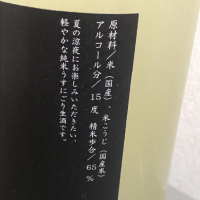 原材料／米（国産）、米こうじ（国産米）
アルコール分／15度 精米歩合／65%
夏の涼夜にお楽しみいただきたい、
軽やかな純米うすにごり生酒です。